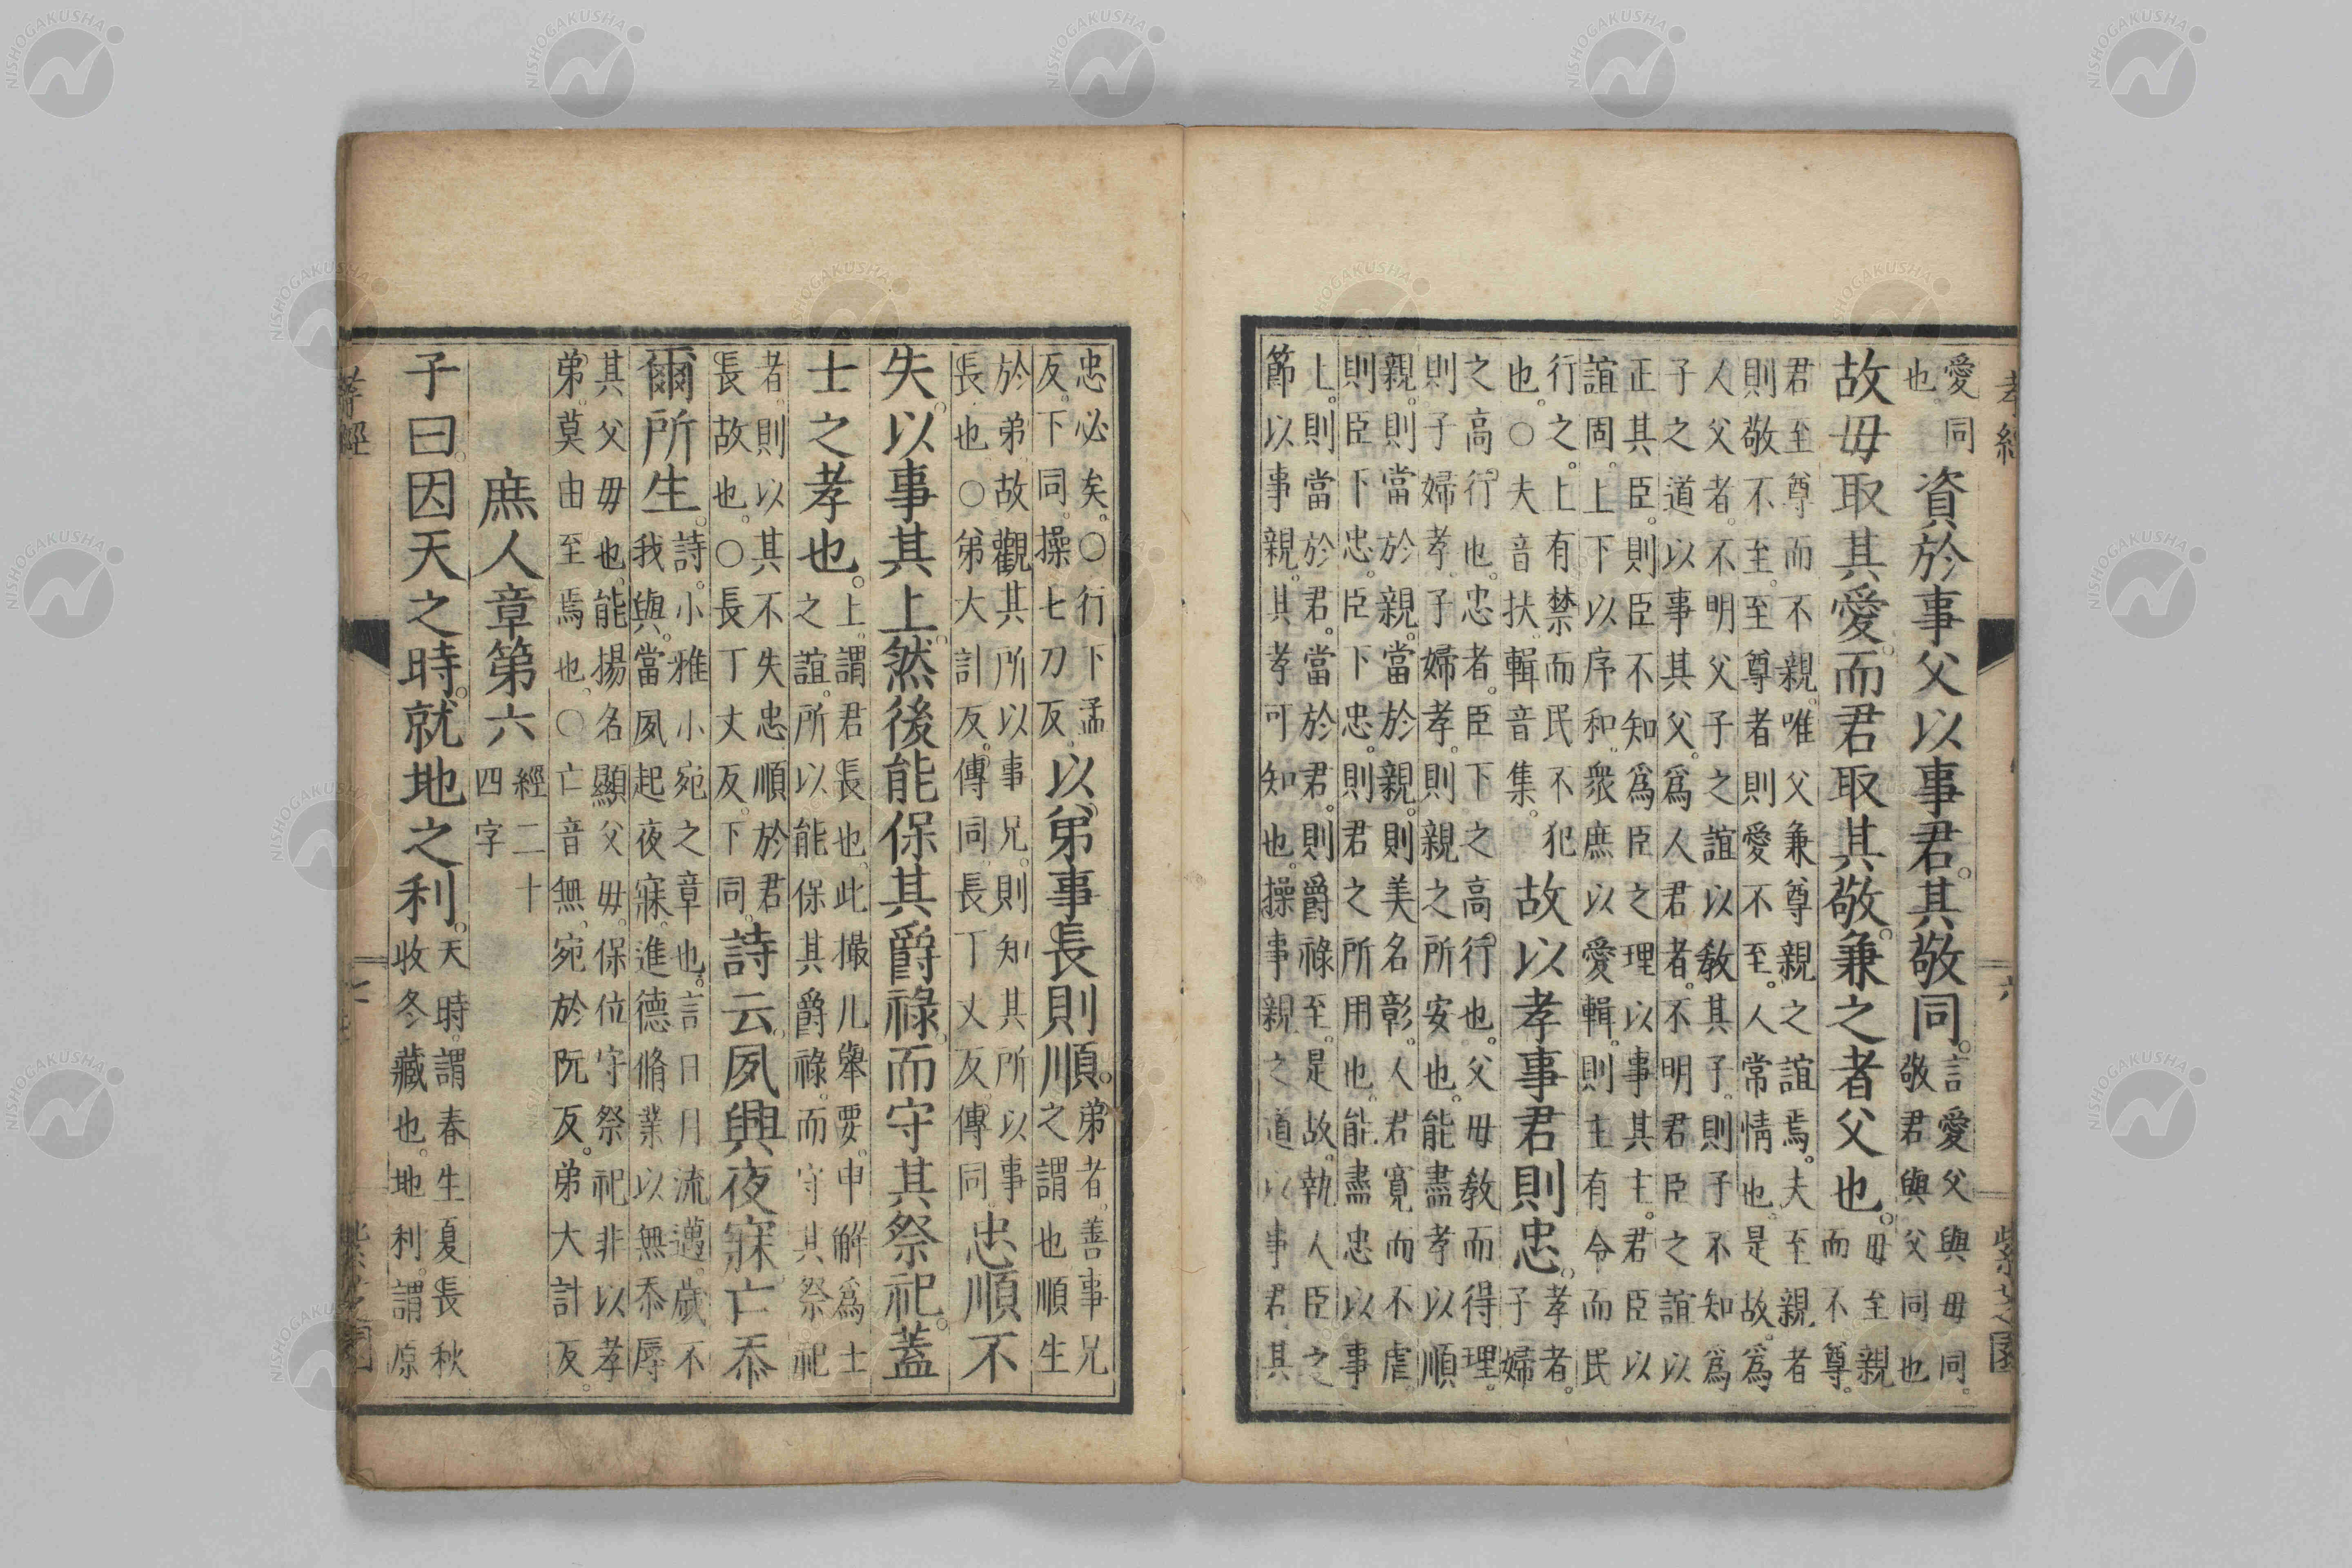 孝經 六
愛同
也
資於事父以事君。其敬同。
言愛父與毋同。
敬君與父同也
故毋取其愛。而君取其敬。兼之者父也。
毋至親
而不尊。
君至尊而不親。唯父兼尊親之誼焉。夫至親者
則敬不至。至尊者則愛不至。人常情也。是故。爲
人父者。不明父子之誼以敎其子。則子不知爲
子之道以事其父。爲人君者。不明君臣之誼以
正其臣。則臣不知爲臣之理以事其主。君臣以
誼固。上下以序和。衆庶以愛輯。則主有令而民
行之。上有禁而民不犯
也。○夫音扶輯音集。
故以孝事君則忠。
孝者。
子婦
之高行也。忠者。臣下之高行也。父毋敎而得理。
則子婦孝。子婦孝。則親之所安也。能盡孝以順
親。則當於親。當於親。則美名彰。人君寛而不虐。
則臣下忠。臣下忠。則君之所用也。能盡忠以事
上。則當於君。當於君。則爵祿至。是故。執人臣之
節以事親。其孝可知也。操事親之道以事君其
忠必矣。○行下孟
反。下同。操七刀反
以弟事長則順。
弟者。善事兄
之謂也順生
於弟。故觀其所以事兄。則知其所以事
長也。○弟大計反。傳同。長丁丈反。傳同。
忠順不
失。以事其上。然後能保其爵祿。而守其祭祀。蓋
士之孝也。
上。謂君長也。此撮凡舉要。申解爲士
之誼。所以能保其爵祿。而守其祭祀
者。則以其不失忠順於君
長故也。○長丁丈反。下同。
詩云。夙興夜寐。亡忝
爾所生。
詩。小雅小宛之章也。言日月流邁。歲不
我與。當夙起夜寐。進德脩業以無忝辱
其父毋也。能揚名顯父毋。保位守祭祀非以孝
弟。莫由至焉也。○亡音無。宛於阮反。弟大計反。
庶人章第六
經二十
四字
子曰。因天之時。就地之利。
天時。謂春生夏長秋
收冬藏也。地利。謂原
孝經
NISHOGAKUSHA